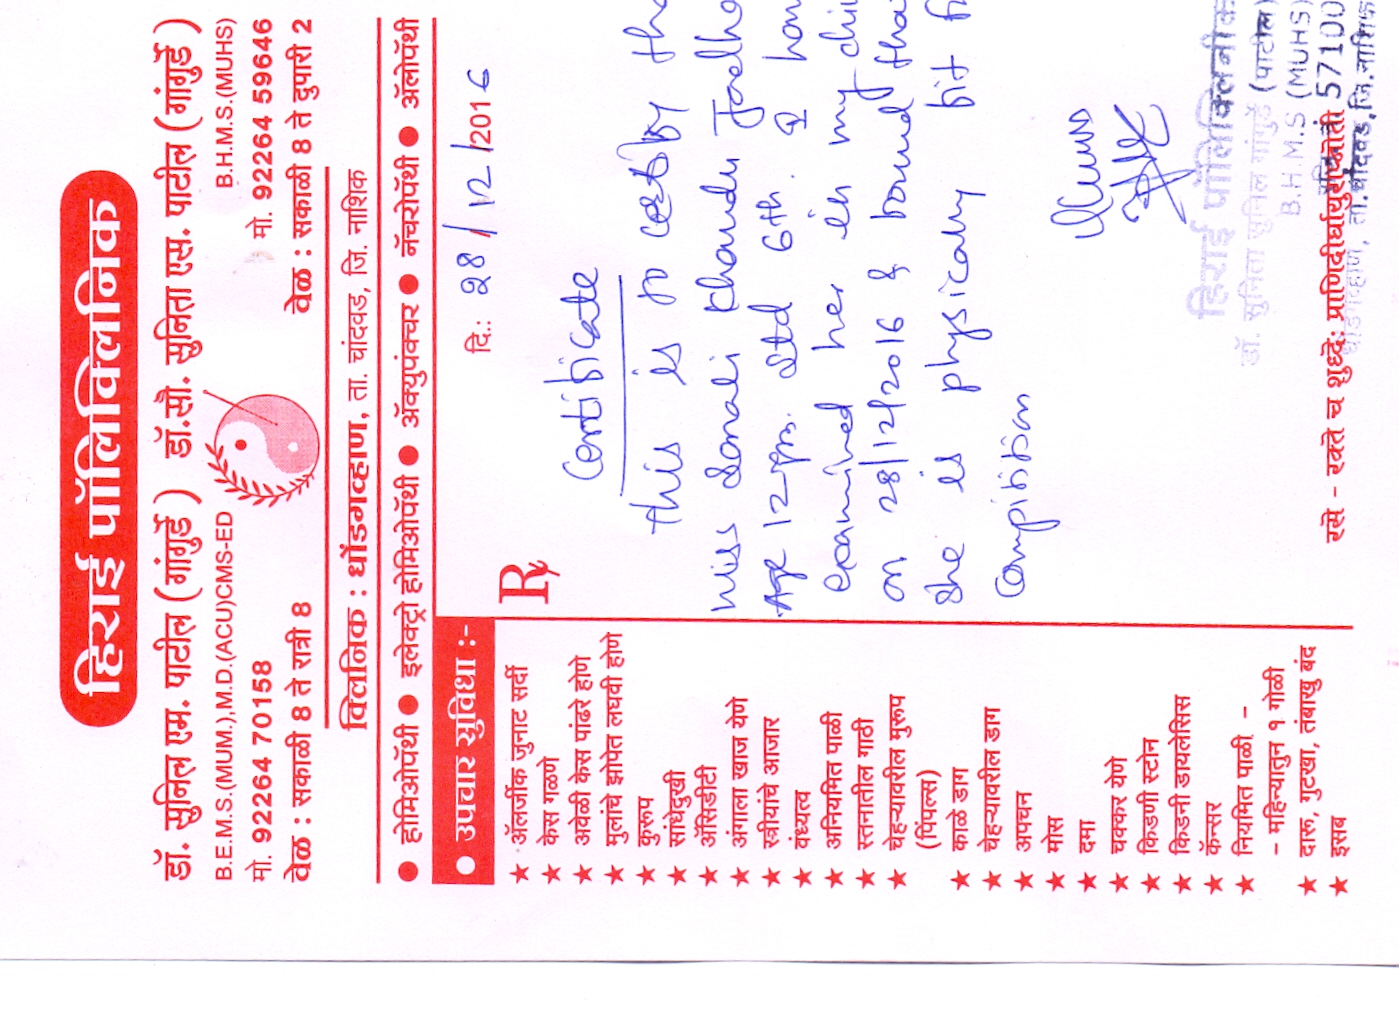 हिराई पॉलिक्लिनिक
डॉ. सुनिल एम. पाटील (गांगुर्डे )
B.E.M.S.(MUM.),M.D.(ACU)CMS-ED
मो. 92264 70158
वेळ : सकाळी 8 ते रात्री 8
डॉ.सौ. सुनिता एस. पाटील ( गांगुर्डे )
B.H.M.S.(MUHS)
मो. 92264 59646
वेळ : सकाळी 8 ते दुपारी 2
क्लिनिक : धोंडगव्हाण, ता. चांदवड, जि. नाशिक
● होमिओपॅथी ● इलेक्ट्रो होमिओपॅथी ● ॲक्युपंक्चर ● नॅचरोपॅथी ● ॲलोपॅथी
● उपचार सुविधा :-
★ ॲलर्जीक जुनाट सर्दी
★ केस गळणे
★ अवेळी केस पांढरे होणे
★ मुलांचे झोपेत लघवी होणे
★ कुरूप
★ सांधेदुखी
★ ॲसिडीटी
★ अंगाला खाज येणे
★ स्त्रीयांचे आजार
★ वंध्यत्व
★ अनियमित पाळी
★ स्तनातील गाठी
★ चेहऱ्यावरील मुरूप
(पिंपल्स)
★ काळे डाग
★ चेहऱ्यावरील डाग
★ अपचन
★ मोस
★ दमा
★ चक्कर येणे
★ किडणी स्टोन
★ किडनी डायलेसिस
★ कॅन्सर
★ नियमित पाळी -
- महिन्यातुन १ गोळी
★ दारू, गुटखा, तंबाखु बंद
★ इसब
दि.: 28/12/2016
Rx
Certificate
this is to certify tha
miss Sonali Khandu Jadha
Age 12 yrs. std 6th. I hav
examined her in my clini
on 28/12/2016 & found that
She is physically fit f
Compitition
हिराई पॉलिक्लिनीक
डॉ. सुनिता सुनिल गांगुर्डे (पाटील)
B.H.M.S (MUHS)
57100
धोंडगव्हाण, ता.चांदवड,जि.नाशिक
रसे - रक्ते च शुध्दे: प्राणिदीर्घायुराप्नोती